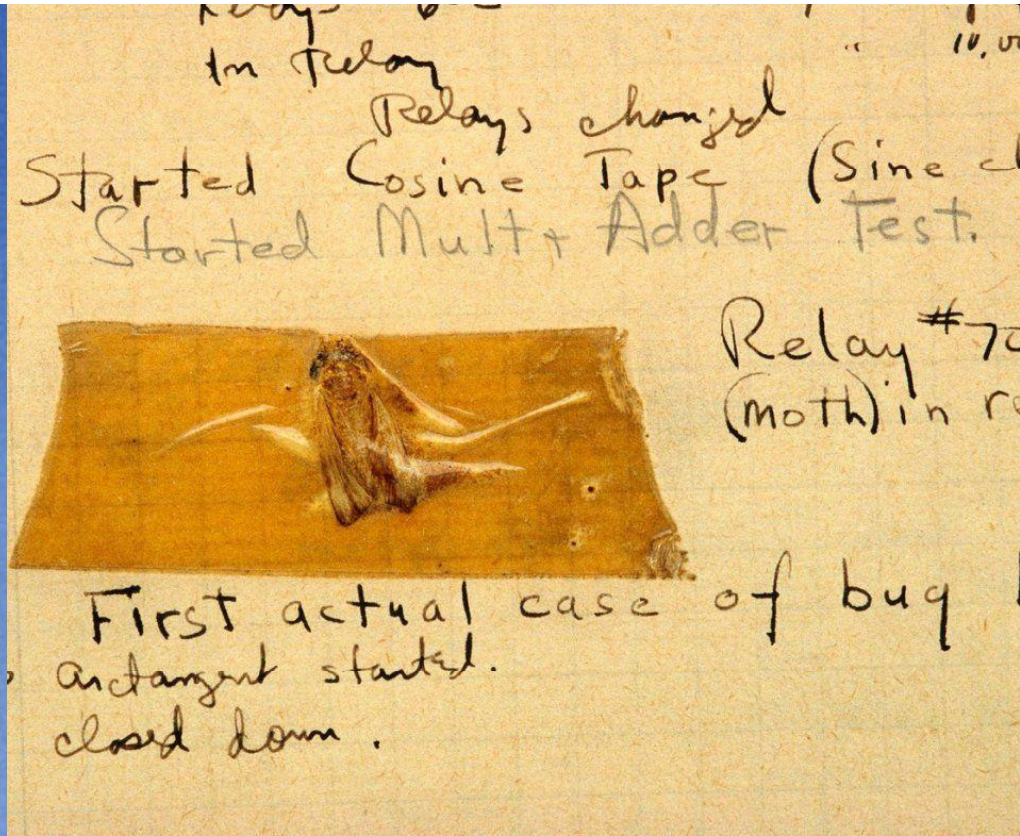 In Relay
Relays changed
Started Cosine Tape (Sine
Started Mult+ Adder Test.
Relay #70
(moth) in
First actual case of bug
arctangent started.
closed down.